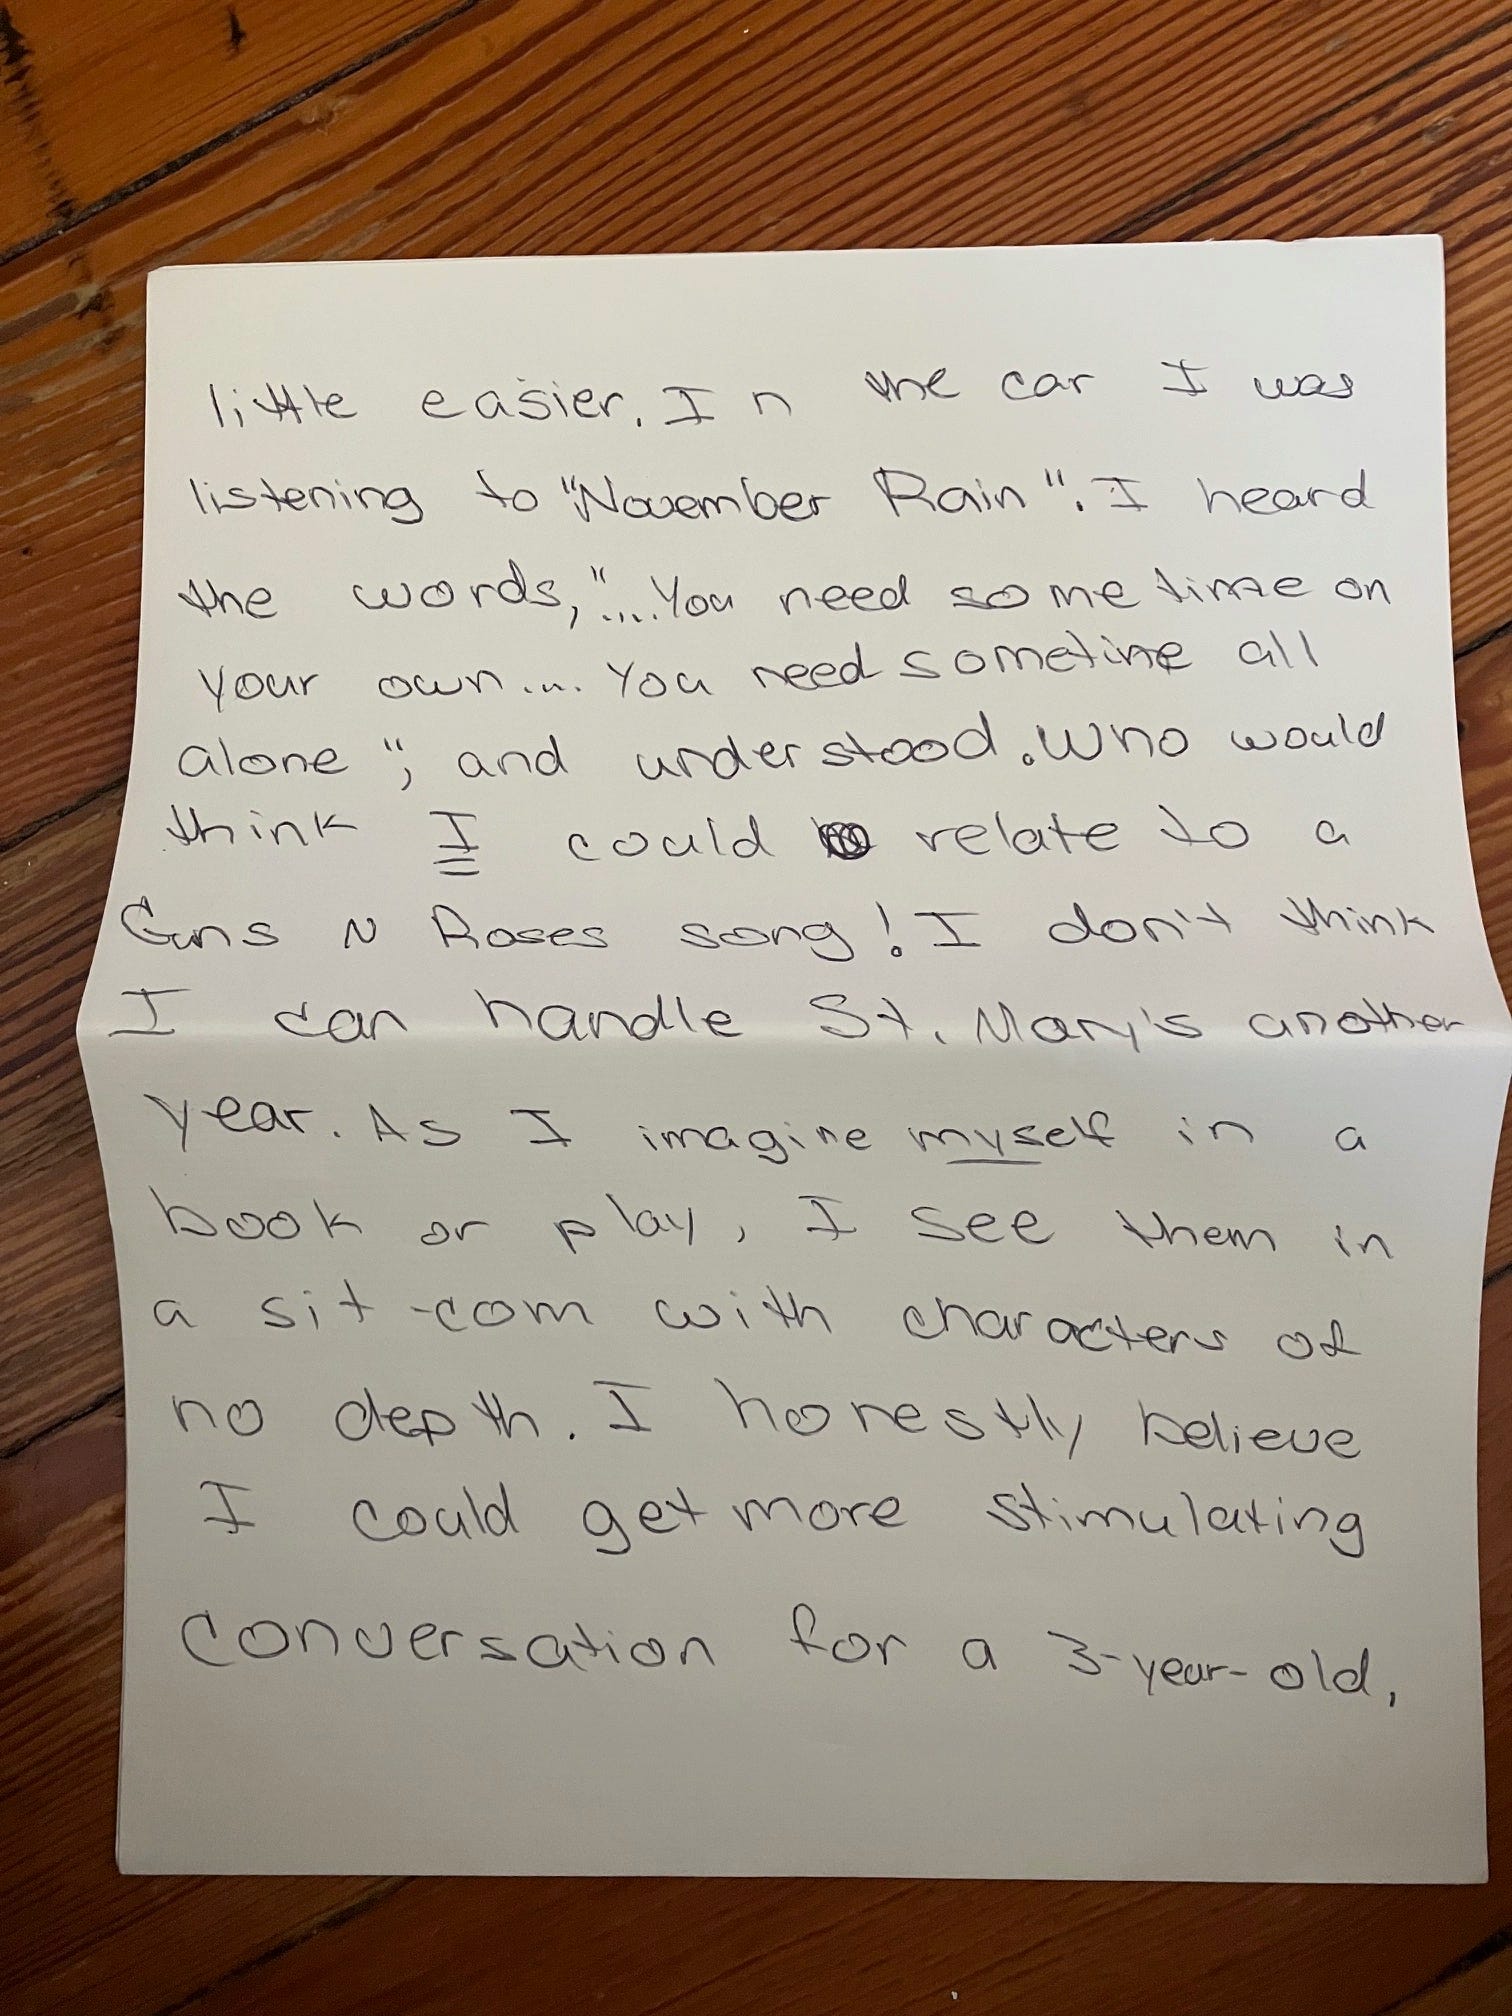 little easier. In the car I was
listening to "November Rain". I heard
the words, "....You need some time on
your own.... You need sometime all
alone", and understood. Who would
think I could relate to a
Guns N Roses song! I don't think
I can handle St. Mary's another
year. As I imagine myself in a
book or play, I see them in
a sit-com with characters of
no depth. I honestly believe
I could get more stimulating
conversation for a 3-year-old,